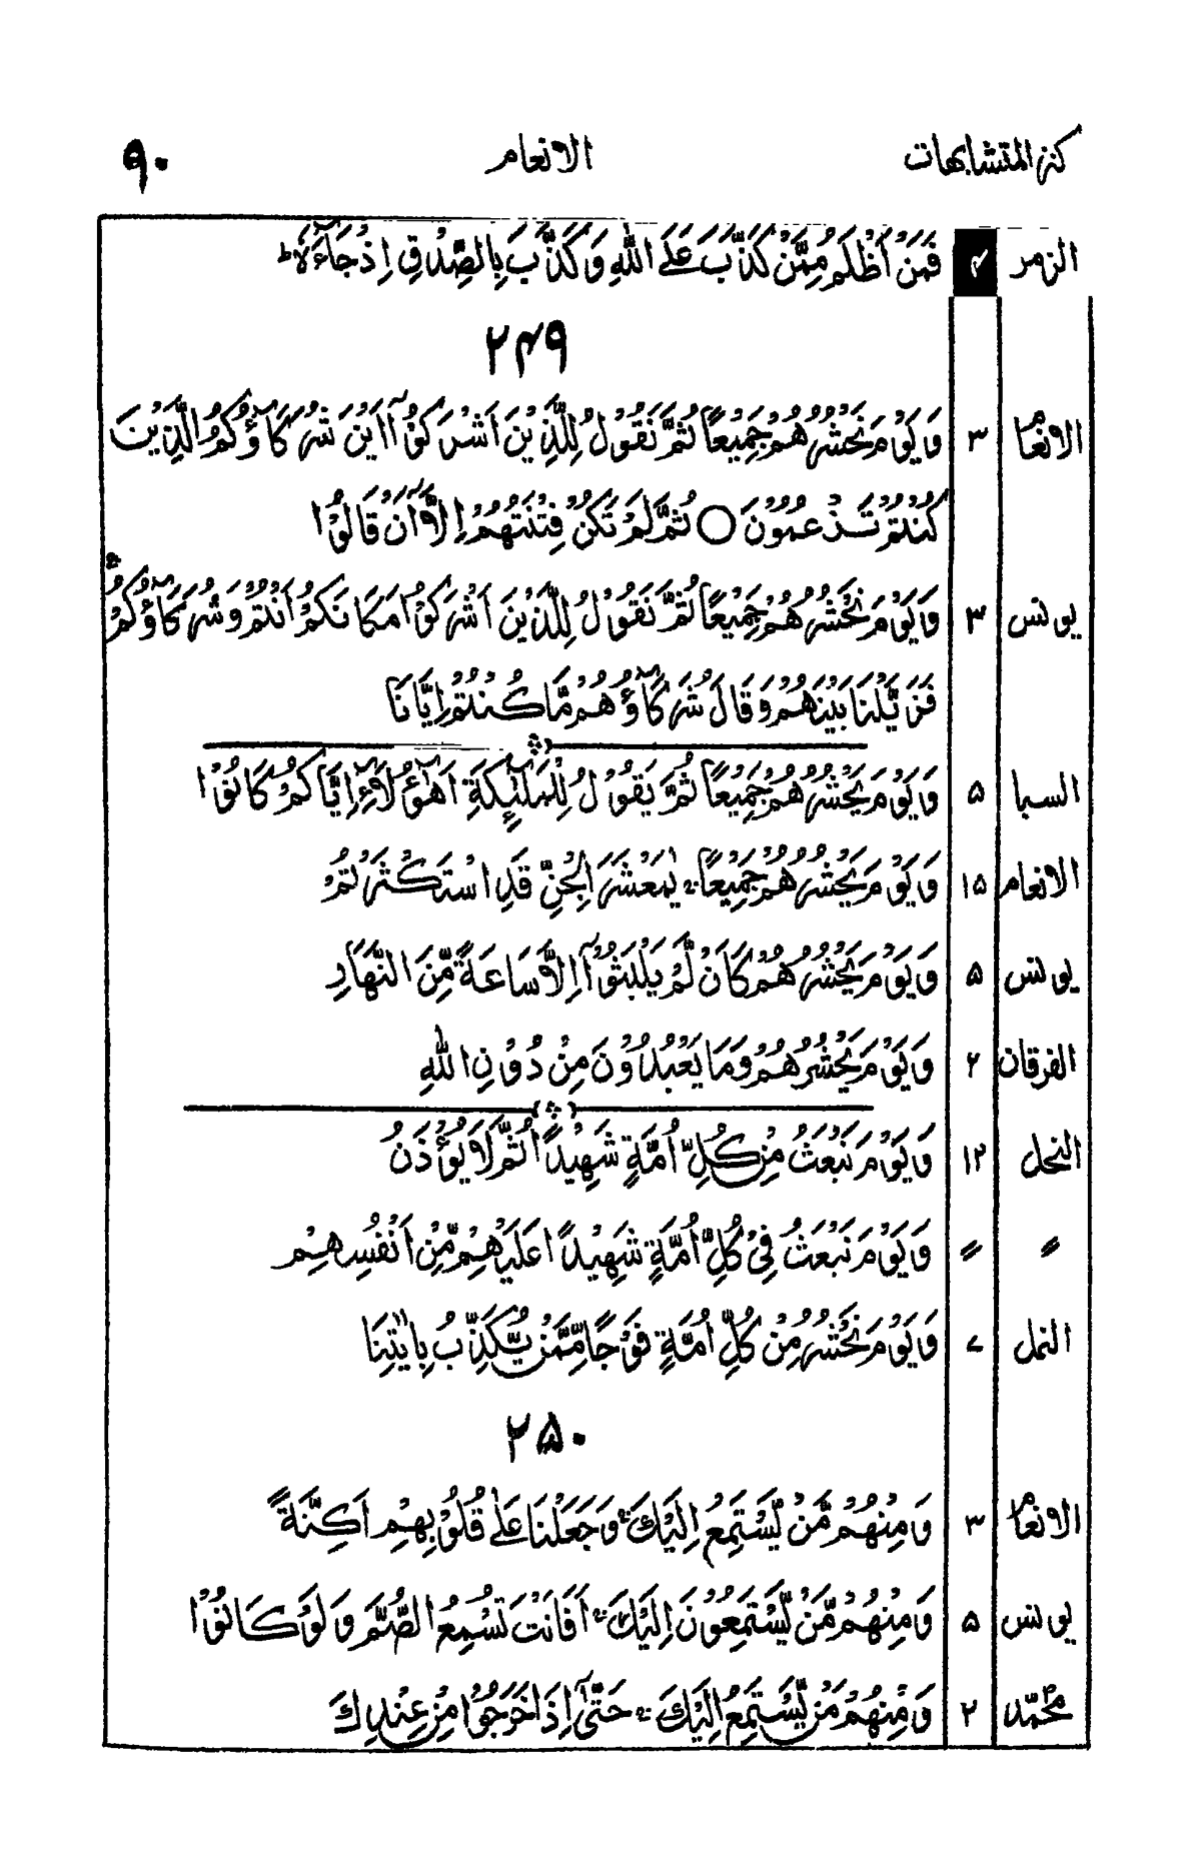 كنز المتشابهات الانعام ٩٠
الزمر ۴ فَمَنْ اَظْلَمُ مِمَّنْ كَذَبَ عَلَى اللّٰهِ وَكَذَّبَ بِالصِّدْقِ اِذْ جَآءَهٗ ط
۲۴۹
الانعام ۳ وَيَوْمَ نَحْشُرُهُمْ جَمِيْعًا ثُمَّ نَقُوْلُ لِلَّذِيْنَ اَشْرَكُوْٓا اَيْنَ شُرَكَآؤُكُمُ الَّذِيْنَ
كُنْتُمْ تَزْعُمُوْنَ ○ ثُمَّ لَمْ تَكُنْ فِتْنَتُهُمْ اِلَّآ اَنْ قَالُوْا
يونس ۳ وَيَوْمَ نَحْشُرُهُمْ جَمِيْعًا ثُمَّ نَقُوْلُ لِلَّذِيْنَ اَشْرَكُوْا مَكَانَكُمْ اَنْتُمْ وَشُرَكَآؤُكُمْ ۚ
فَزَيَّلْنَا بَيْنَهُمْ وَقَالَ شُرَكَآؤُهُمْ مَّا كُنْتُمْ اِيَّانَا
السبا ۵ وَيَوْمَ يَحْشُرُهُمْ جَمِيْعًا ثُمَّ يَقُوْلُ لِلْمَلٰٓئِكَةِ اَهٰٓؤُلَآءِ اِيَّاكُمْ كَانُوْا
الانعام ۱۵ وَيَوْمَ يَحْشُرُهُمْ جَمِيْعًا ۚ يٰمَعْشَرَ الْجِنِّ قَدِ اسْتَكْثَرْتُمْ
يونس ۵ وَيَوْمَ يَحْشُرُهُمْ كَاَنْ لَّمْ يَلْبَثُوْٓا اِلَّا سَاعَةً مِّنَ النَّهَارِ
الفرقان ۲ وَيَوْمَ يَحْشُرُهُمْ وَمَا يَعْبُدُوْنَ مِنْ دُوْنِ اللّٰهِ
النحل ۱۲ وَيَوْمَ نَبْعَثُ مِنْ كُلِّ اُمَّةٍ شَهِيْدًا ثُمَّ لَا يُؤْذَنُ
〃 〃 وَيَوْمَ نَبْعَثُ فِيْ كُلِّ اُمَّةٍ شَهِيْدًا عَلَيْهِمْ مِّنْ اَنْفُسِهِمْ
النمل ۷ وَيَوْمَ نَحْشُرُ مِنْ كُلِّ اُمَّةٍ فَوْجًا مِّمَّنْ يُّكَذِّبُ بِاٰيٰتِنَا
۲۵۰
الانعام ۳ وَمِنْهُمْ مَّنْ يَّسْتَمِعُ اِلَيْكَ ۚ وَجَعَلْنَا عَلٰى قُلُوْبِهِمْ اَكِنَّةً
يونس ۵ وَمِنْهُمْ مَّنْ يَّسْتَمِعُوْنَ اِلَيْكَ ۚ اَفَاَنْتَ تُسْمِعُ الصُّمَّ وَلَوْ كَانُوْا
محمّد ۲ وَمِنْهُمْ مَّنْ يَّسْتَمِعُ اِلَيْكَ ۚ حَتّٰٓى اِذَا خَرَجُوْا مِنْ عِنْدِكَ